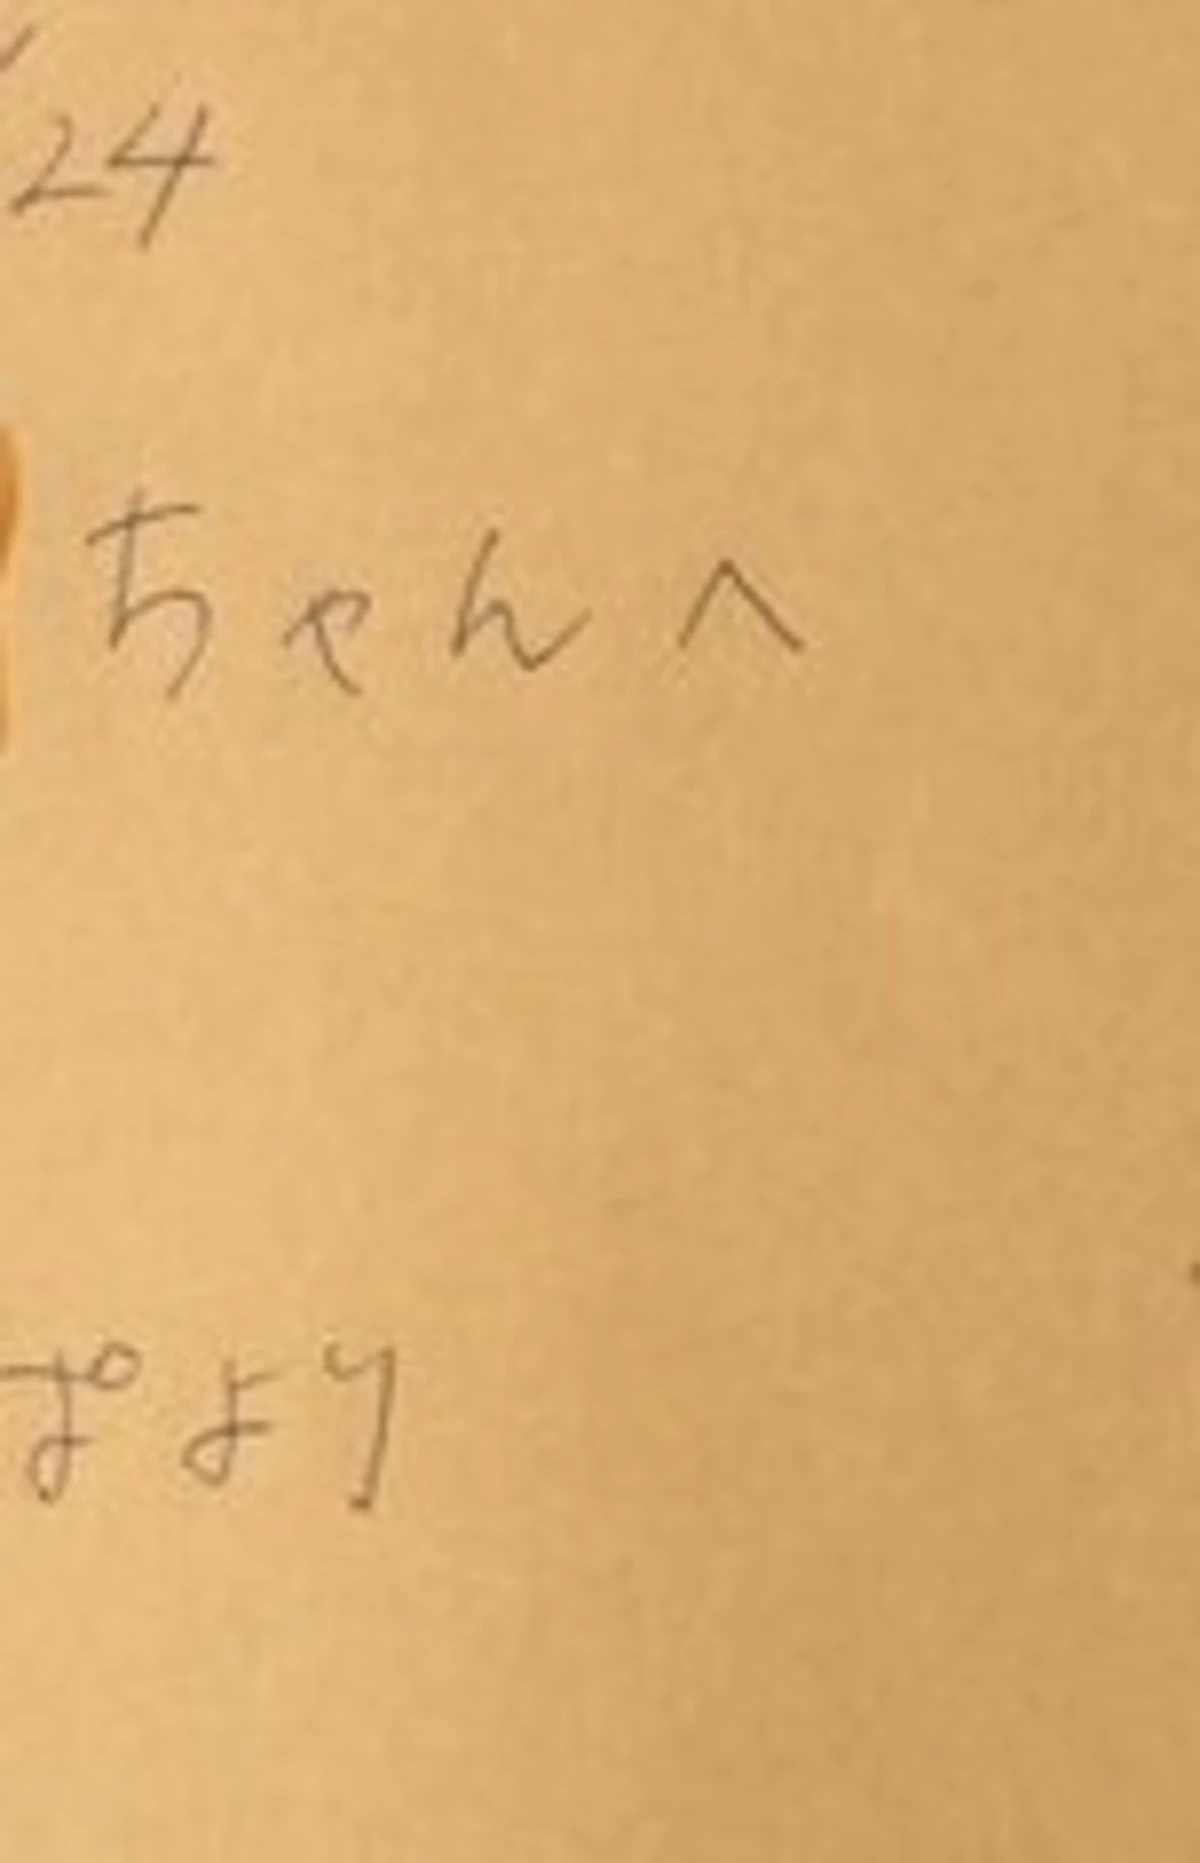 24
ちゃんへ
ぽより